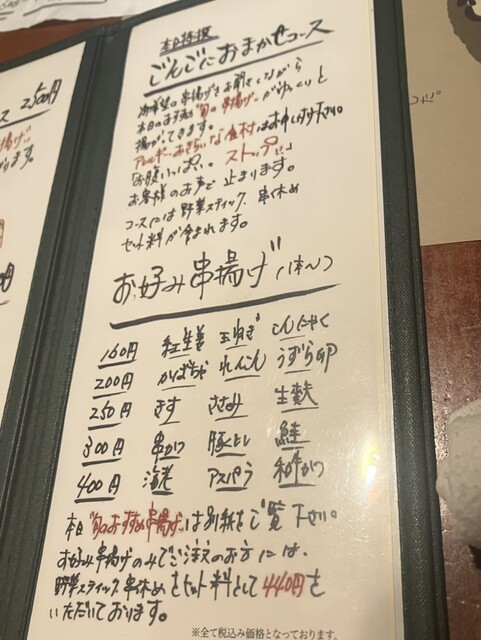 ス 2500円
本日特撰
ごんごにおまかせコース
串揚げをお出ししながら
本日のおすすめ"旬の串揚げ"がゆっくりと
揚がってきます。
アレルギー、おきらいな食材はお申し付け下さい。
「お腹いっぱい。ストップ。」
お客様のお声で止まります。
コースには野菜スティック、串休め
セット料が含まれます。
お好み串揚げ(1本〜)
160円 紅生姜 玉ねぎ こんにゃく
200円 かぼちゃ れんこん うずら卵
250円 きす ささみ 生麩
300円 串かつ 豚ヒレ 鮭
400円 海老 アスパラ 和牛かつ
本日"旬のおすすめ串揚げ"は別紙をご覧下さい。
お好み串揚げのみでご注文のお方には、
野菜スティック、串休めをセット料として440円を
いただいております。
※全て税込み価格となっております。